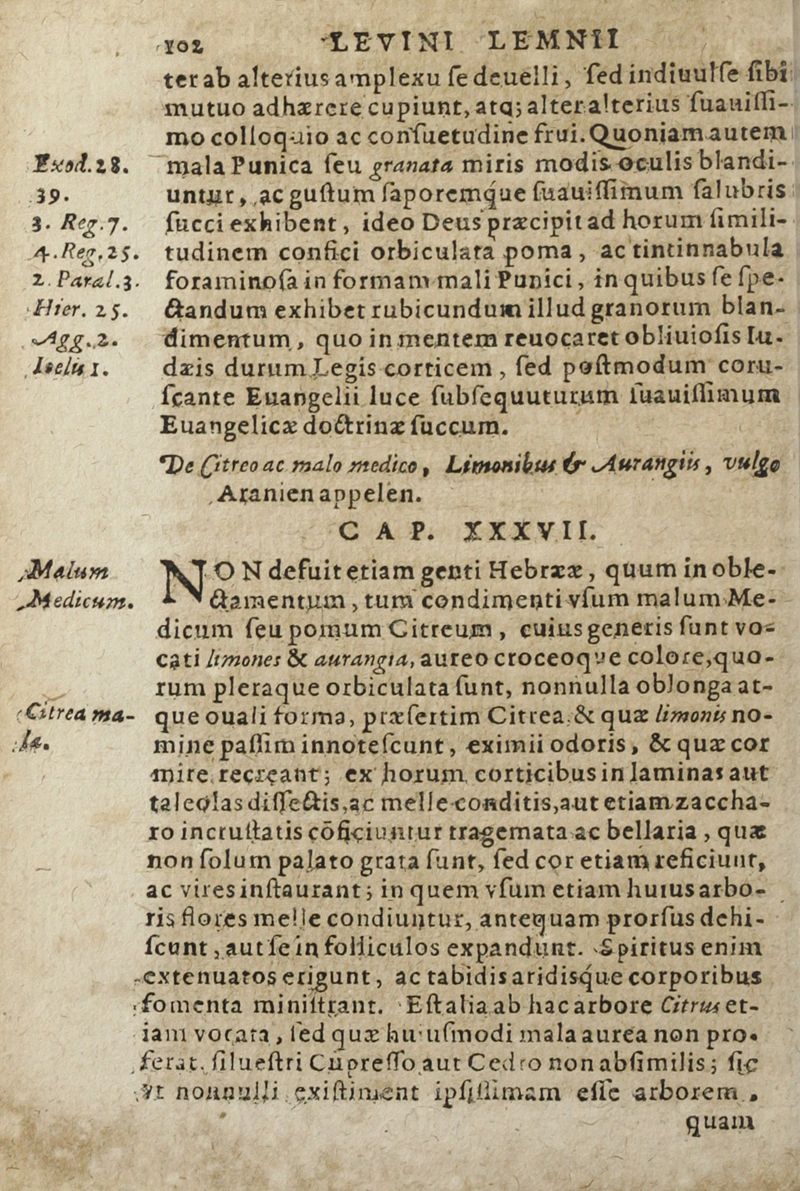 102 LEVINI LEMNII
ter ab alterius amplexu ſe deuelli, ſed indiuulſe ſibi
mutuo adhærere cupiunt, atq; alter alterius ſuauiſſi-
mo colloquio ac conſuetudine frui. Quoniam autem
Exod. 28. mala Punica ſeu granata miris modis oculis blandi-
39. untur, ac guſtum ſaporemque ſuauiſſimum ſalubris
3. Reg. 7. ſucci exhibent, ideo Deus præcipit ad horum ſimili-
4. Reg. 25. tudinem confici orbiculata poma, ac tintinnabula
2. Paral. 3. foraminoſa in formam mali Punici, in quibus ſe ſpe-
Hier. 25. ctandum exhibet rubicundum illud granorum blan-
Agg. 2. dimentum, quo in mentem reuocaret obliuioſis Iu-
Ioelis 1. dæis durum Legis corticem, ſed poſtmodum coru-
ſcante Euangelii luce ſubſequuturum ſuauiſſimum
Euangelicæ doctrinæ ſuccum.
De Citreo ac malo medico, Limonibus & Aurangiis, vulgo
Aranien appelen.
CAP. XXXVII.
Malum NON defuit etiam genti Hebrææ, quum in oble-
Medicum. ctamentum, tum condimenti vſum malum Me-
dicum ſeu pomum Citreum, cuius generis ſunt vo-
cati limones & aurangia, aureo croceoque colore, quo-
rum pleraque orbiculata ſunt, nonnulla oblonga at-
Citrea ma- que ouali forma, præſertim Citrea & quæ limonis no-
la. mine paſſim innoteſcunt, eximii odoris, & quæ cor
mire recreant; ex horum corticibus in laminas aut
taleolas diſſectis, ac melle conditis, aut etiam zaccha-
ro incruſtatis cōficiuntur tragemata ac bellaria, quæ
non ſolum palato grata ſunt, ſed cor etiam reficiunt,
ac vires inſtaurant; in quem vſum etiam huius arbo-
ris flores melle condiuntur, antequam prorſus dehi-
ſcunt, aut ſe in folliculos expandunt. Spiritus enim
extenuatos erigunt, ac tabidis aridisque corporibus
fomenta miniſtrant. Eſt alia ab hac arbore Citrus et-
iam vocata, ſed quæ huiuſmodi mala aurea non pro-
ferat, ſilueſtri Cupreſſo aut Cedro non abſimilis; ſic
vt nonnulli exiſtiment ipſiſſimam eſſe arborem,
quam